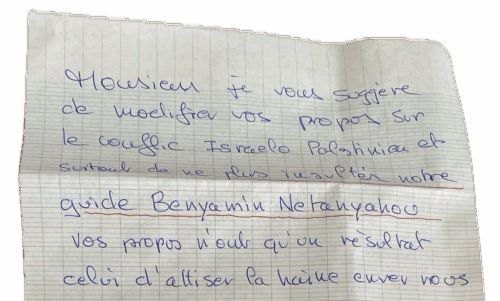 Monsieur je vous suggère
de modifier vos propos sur
le conflic Israelo Palestinien et
surtout de ne plus insulter notre
guide Benyamin Netanyahoo
vos propos n'ont qu'un résultat
celui d'attiser la haine enver nous